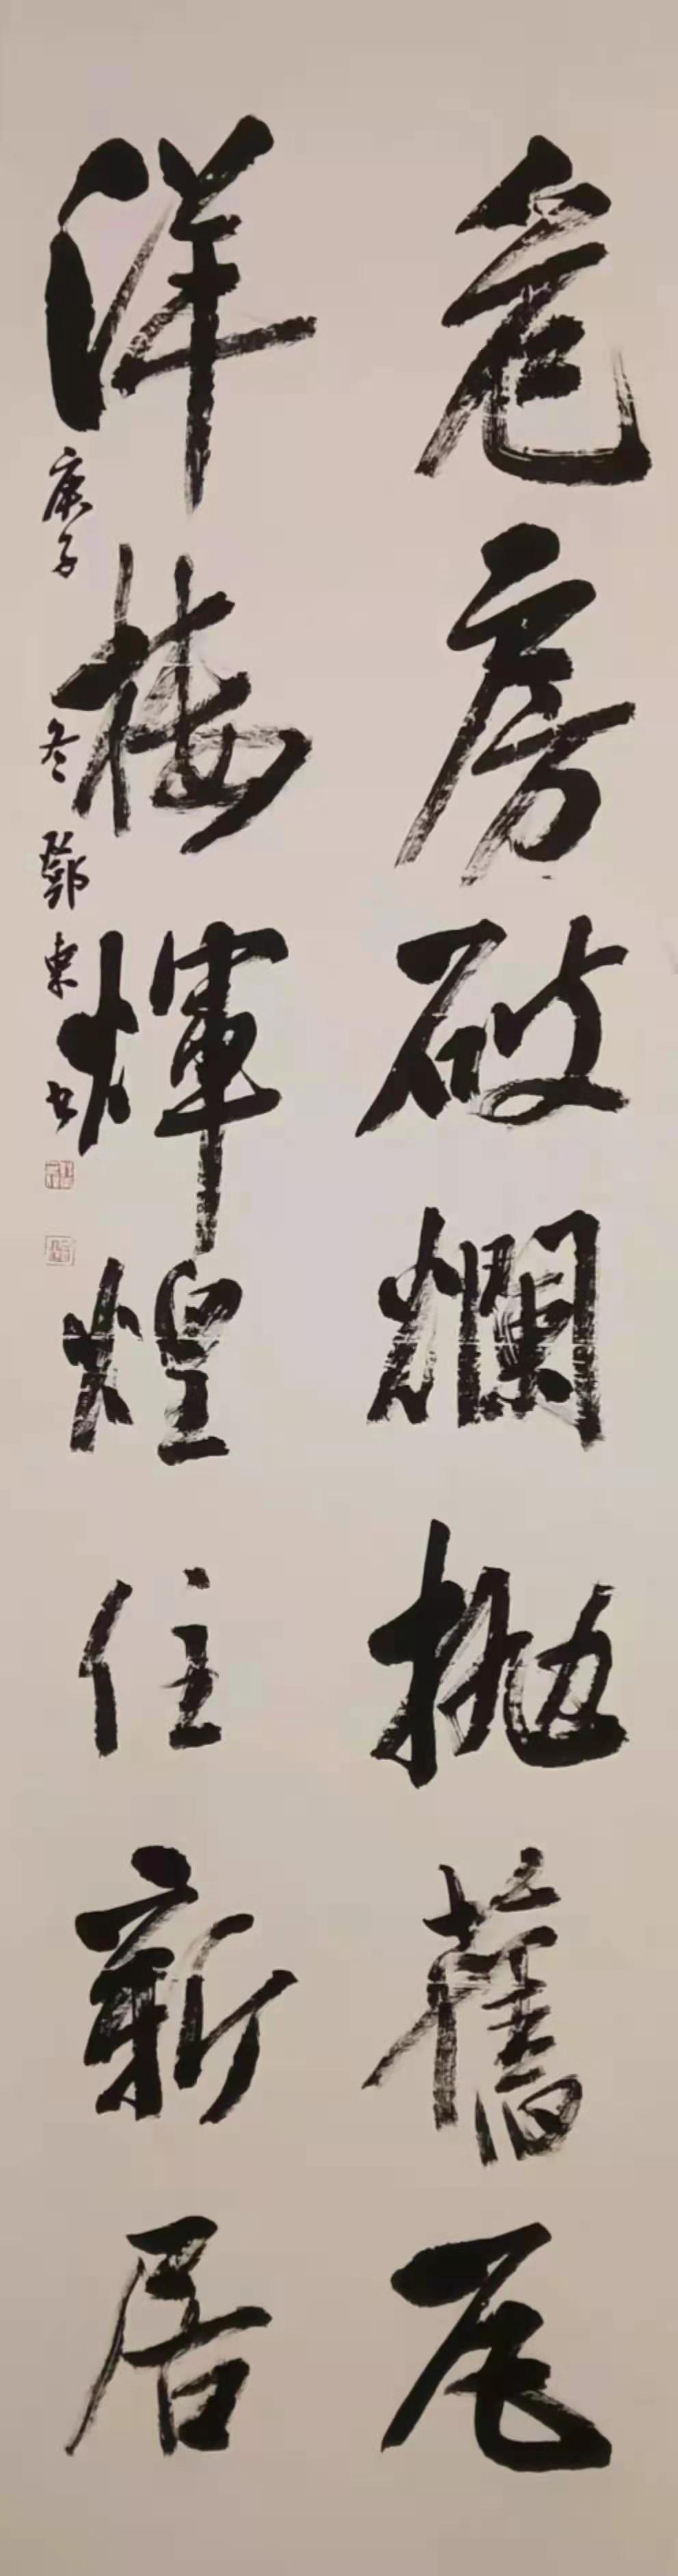 危房破爛抛舊瓦
洋楼輝煌住新居
庚子冬鄧東书